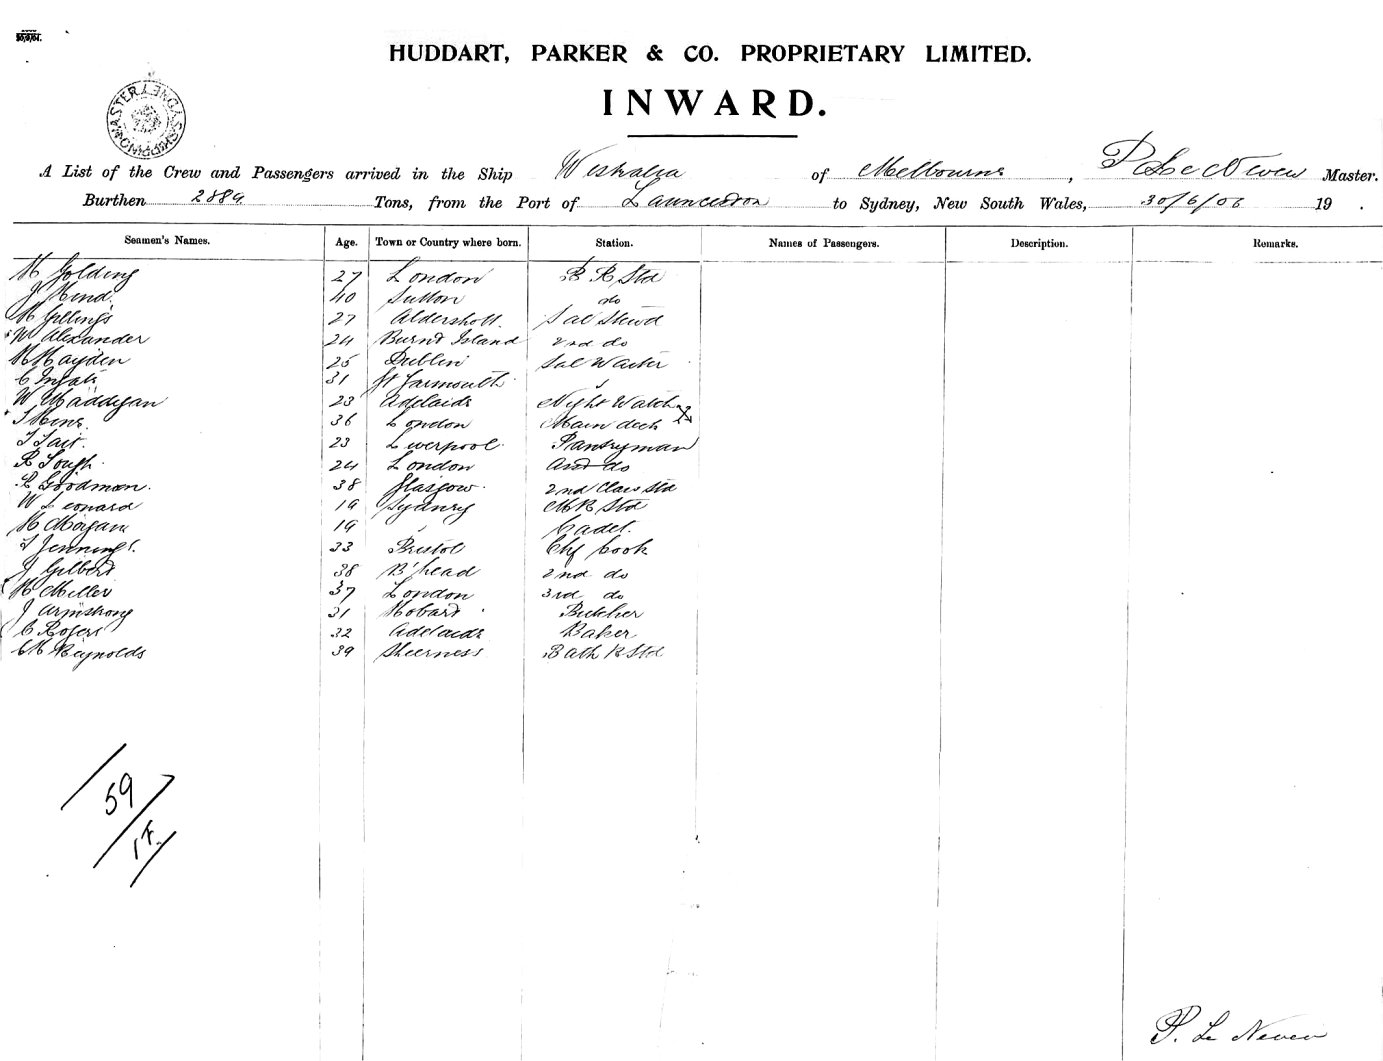 HUDDART, PARKER & CO. PROPRIETARY LIMITED.
INWARD.
A List of the Crew and Passengers arrived in the Ship Westralia of Melbourne, P Le Neveu Master.
Burthen 2889 Tons, from the Port of Launceston to Sydney, New South Wales, 30/6/06 19 .
Seamen's Names. Age. Town or Country where born. Station. Names of Passengers. Description. Remarks.
H Golding 27 London B R Std
J Hind 40 Sutton do
H Gillings 27 Aldershott. Sal Stewd
W Alexander 24 Burnt Island 2nd do
H Hayden 25 Dublin Sal Waiter
C 31 Gt Yarmouth
W Maddigan 23 Adelaide Night Watch
36 London Main deck
T Tait. 23 Liverpool Pantryman
R Tough 24 London do
Goodman. 38 Glasgow 2nd Class Std
W Leonard 19 Sydney Std
H Morgan 19 " Cadet.
T Jennings. 33 Bristol Chf Cook
J Gilbert 38 B'head 2nd do
H Miller 37 London 3rd do
J Armstrong 31 Hobart Butcher
C Rogers 32 Adelaide Baker
M Reynolds 39 Sheerness Bath R Std
59
P. Le Neveu